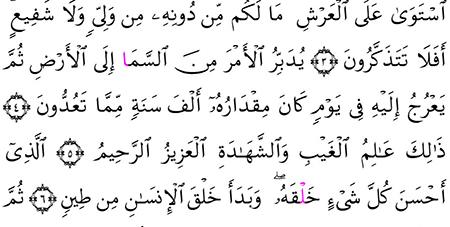 ٱسْتَوَىٰ عَلَى ٱلْعَرْشِ مَا لَكُم مِّن دُونِهِۦ مِن وَلِىٍّ وَلَا شَفِيعٍ
أَفَلَا تَتَذَكَّرُونَ ٣ يُدَبِّرُ ٱلْأَمْرَ مِنَ ٱلسَّمَا إِلَى ٱلْأَرْضِ ثُمَّ
يَعْرُجُ إِلَيْهِ فِى يَوْمٍ كَانَ مِقْدَارُهُۥٓ أَلْفَ سَنَةٍ مِّمَّا تَعُدُّونَ ٤
ذَٰلِكَ عَٰلِمُ ٱلْغَيْبِ وَٱلشَّهَٰدَةِ ٱلْعَزِيزُ ٱلرَّحِيمُ ٥ ٱلَّذِىٓ
أَحْسَنَ كُلَّ شَىْءٍ خَلْقَهُۥۖ وَبَدَأَ خَلْقَ ٱلْإِنسَٰنِ مِن طِينٍ ٦ ثُمَّ